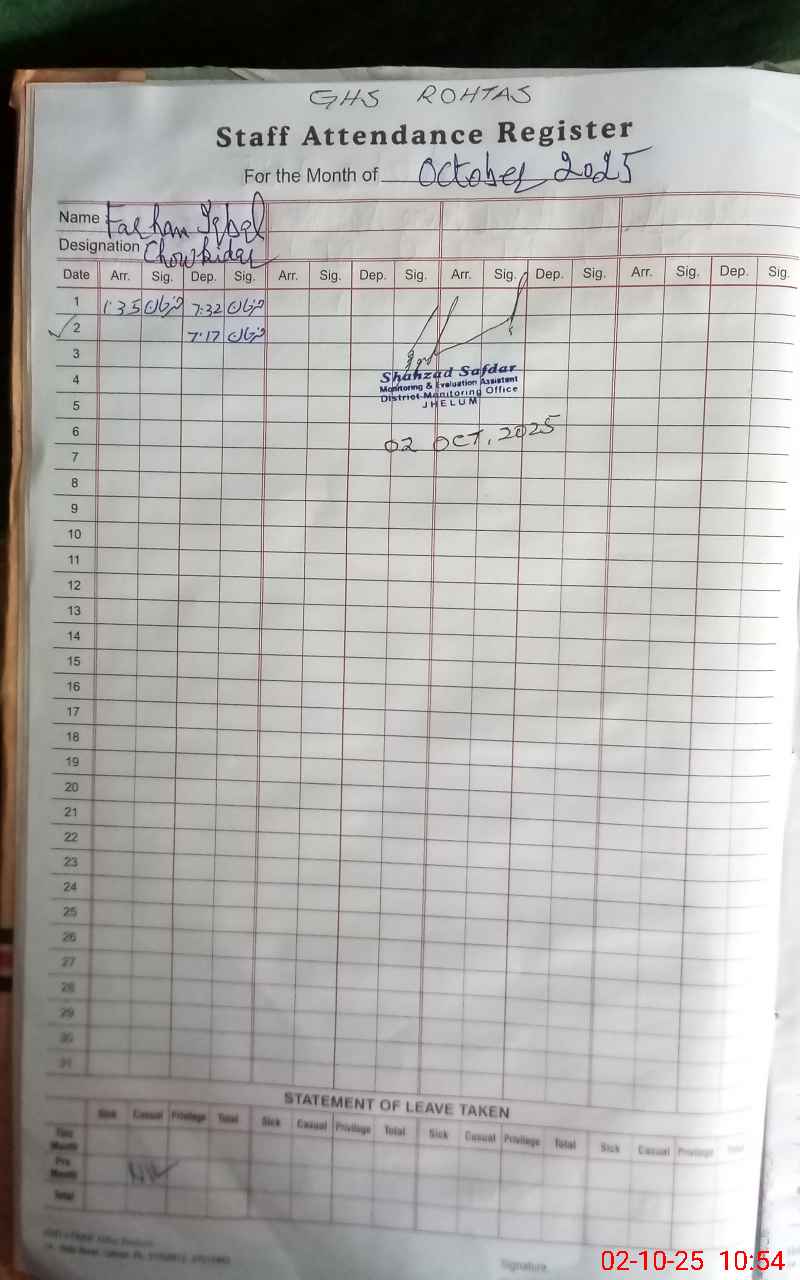 GHS ROHTAS
Staff Attendance Register
For the Month of October 2025
Name Farhan Iqbal
Designation Chowkidar
Date Arr. Sig. Dep. Sig. Arr. Sig. Dep. Sig. Arr. Sig. Dep. Sig. Arr. Sig. Dep. Sig.
1 1:35 فرحان 7:32 فرحان
2 7:17 فرحان
3
Shahzad Safdar
4
Monitoring & Evaluation Assistant
District Monitoring Office
5
JHELUM
6
02 OCT, 2025
7
8
9
10
11
12
13
14
15
16
17
18
19
20
21
22
23
24
25
26
27
28
29
30
31
STATEMENT OF LEAVE TAKEN
Sick Casual Privilege Total Sick Casual Privilege Total Sick Casual Privilege Total Sick Casual Privilege Total
This Month
Pre Month Nil
Total
Signature
02-10-25 10:54